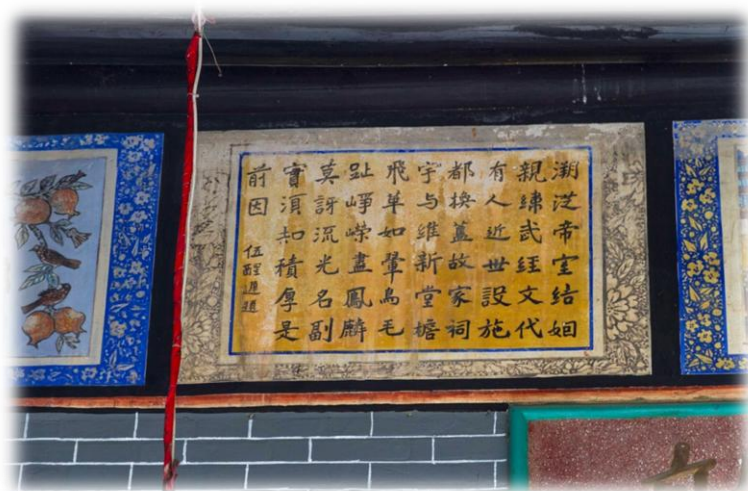 溯帝室結姻
親緯武經文代
有人近世設施
都換蓋故家祠
宇与維新堂檐
飛革如翬鳥毛
趾崢嶸畫鳳麟
莫訝流光名副
實須知積厚是
前因
伍醒題